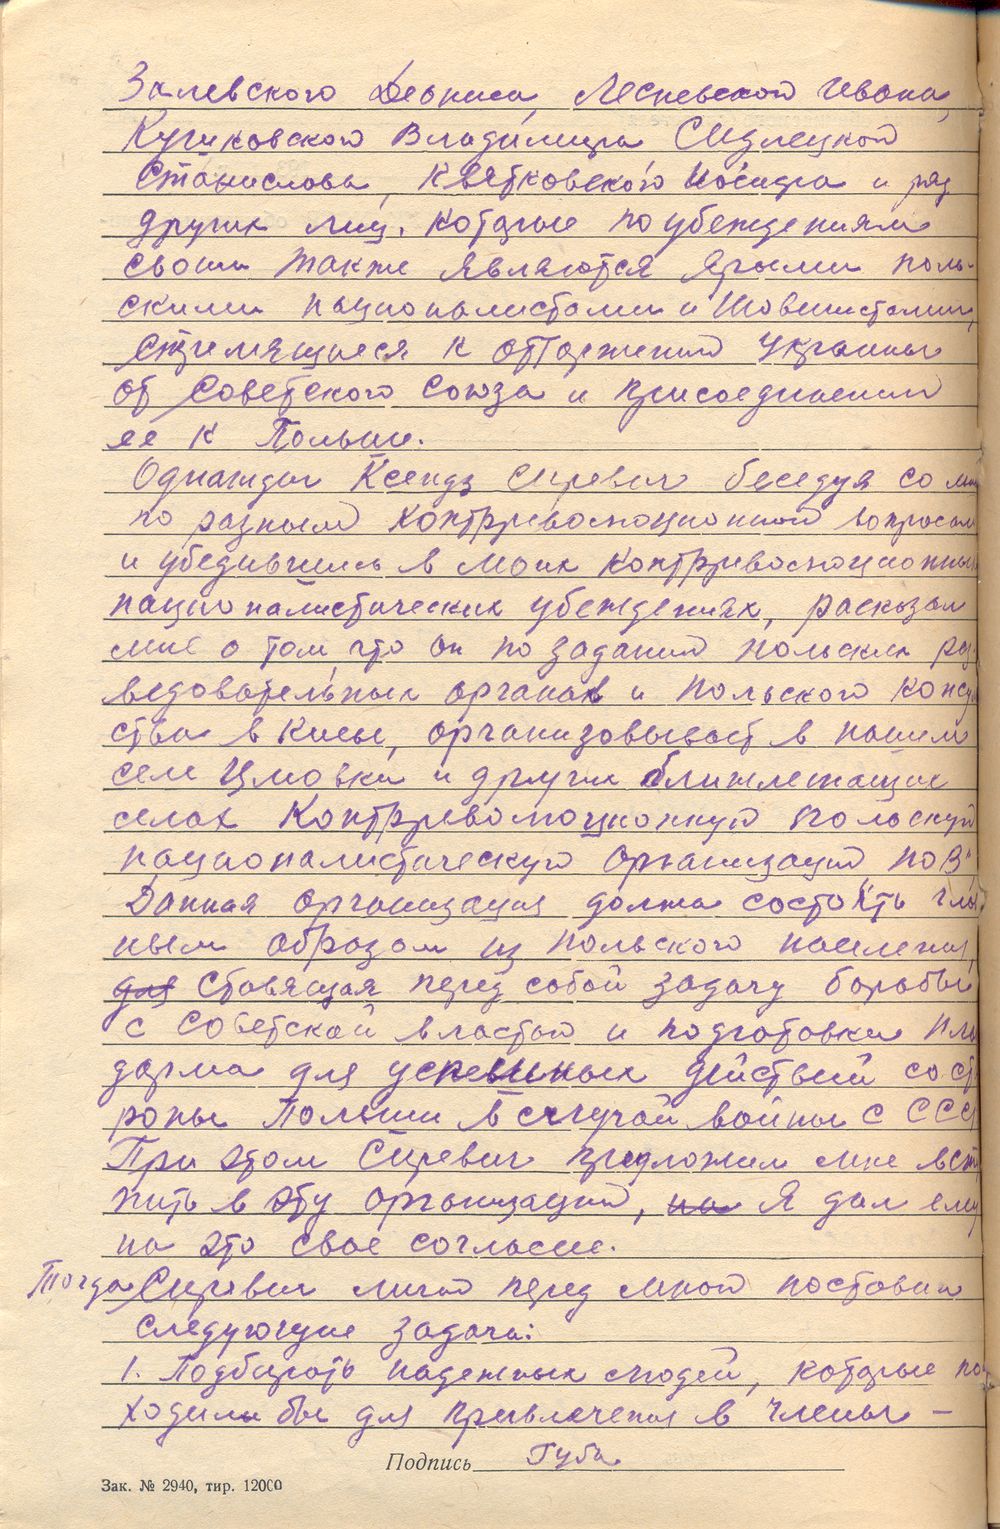 Залевского Деониса, Лесневской Ивана,
Кучиковского Владимира Сидлецкой
Станислова, Квятковского Иосифа и ряд
других лиц, которые по убеждениям
своим также являются ярыми поль-
скими националистами и шовинистами,
стремящиеся к отторжению Украины
от Советского Союза и присоединении
ее к Польши.
Однажды Ксендз Сиревич беседуя со мн
по разным контрреволюционной вопросам
и убедившись в моих контрреволюционных
националистических убеждениях, расказал
мне о том что он по заданию польских раз
ведовательных органов и польского консул
ства в Киеве, организовывает в нашем
селе Цмовка и других ближлежащих
селах контрреволюционную польскую
националистическую организацию "ПОВ"
Данная организация должна состоять глав
ным образом из польского населения,
для ставящая перед собой задачу борьбы
с советской властью и подготовки пла
дарма для успешных действий со ст
роны Польши в случай войны с СССР
При этом Сиревич предложил мне всту
пить в эту организацию, на Я дал ему
на это свое согласие.
Тогда Сиревич лично перед мной поставил
следующие задачи:
1. Подбирать надежных людей, которые по
ходили бы для привлечения в члены -
Подпись Губа
Зак. № 2940, тир. 12000